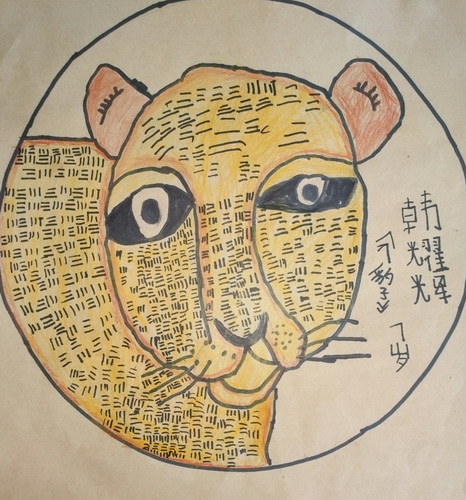 韩耀辉
《豹子》
7岁